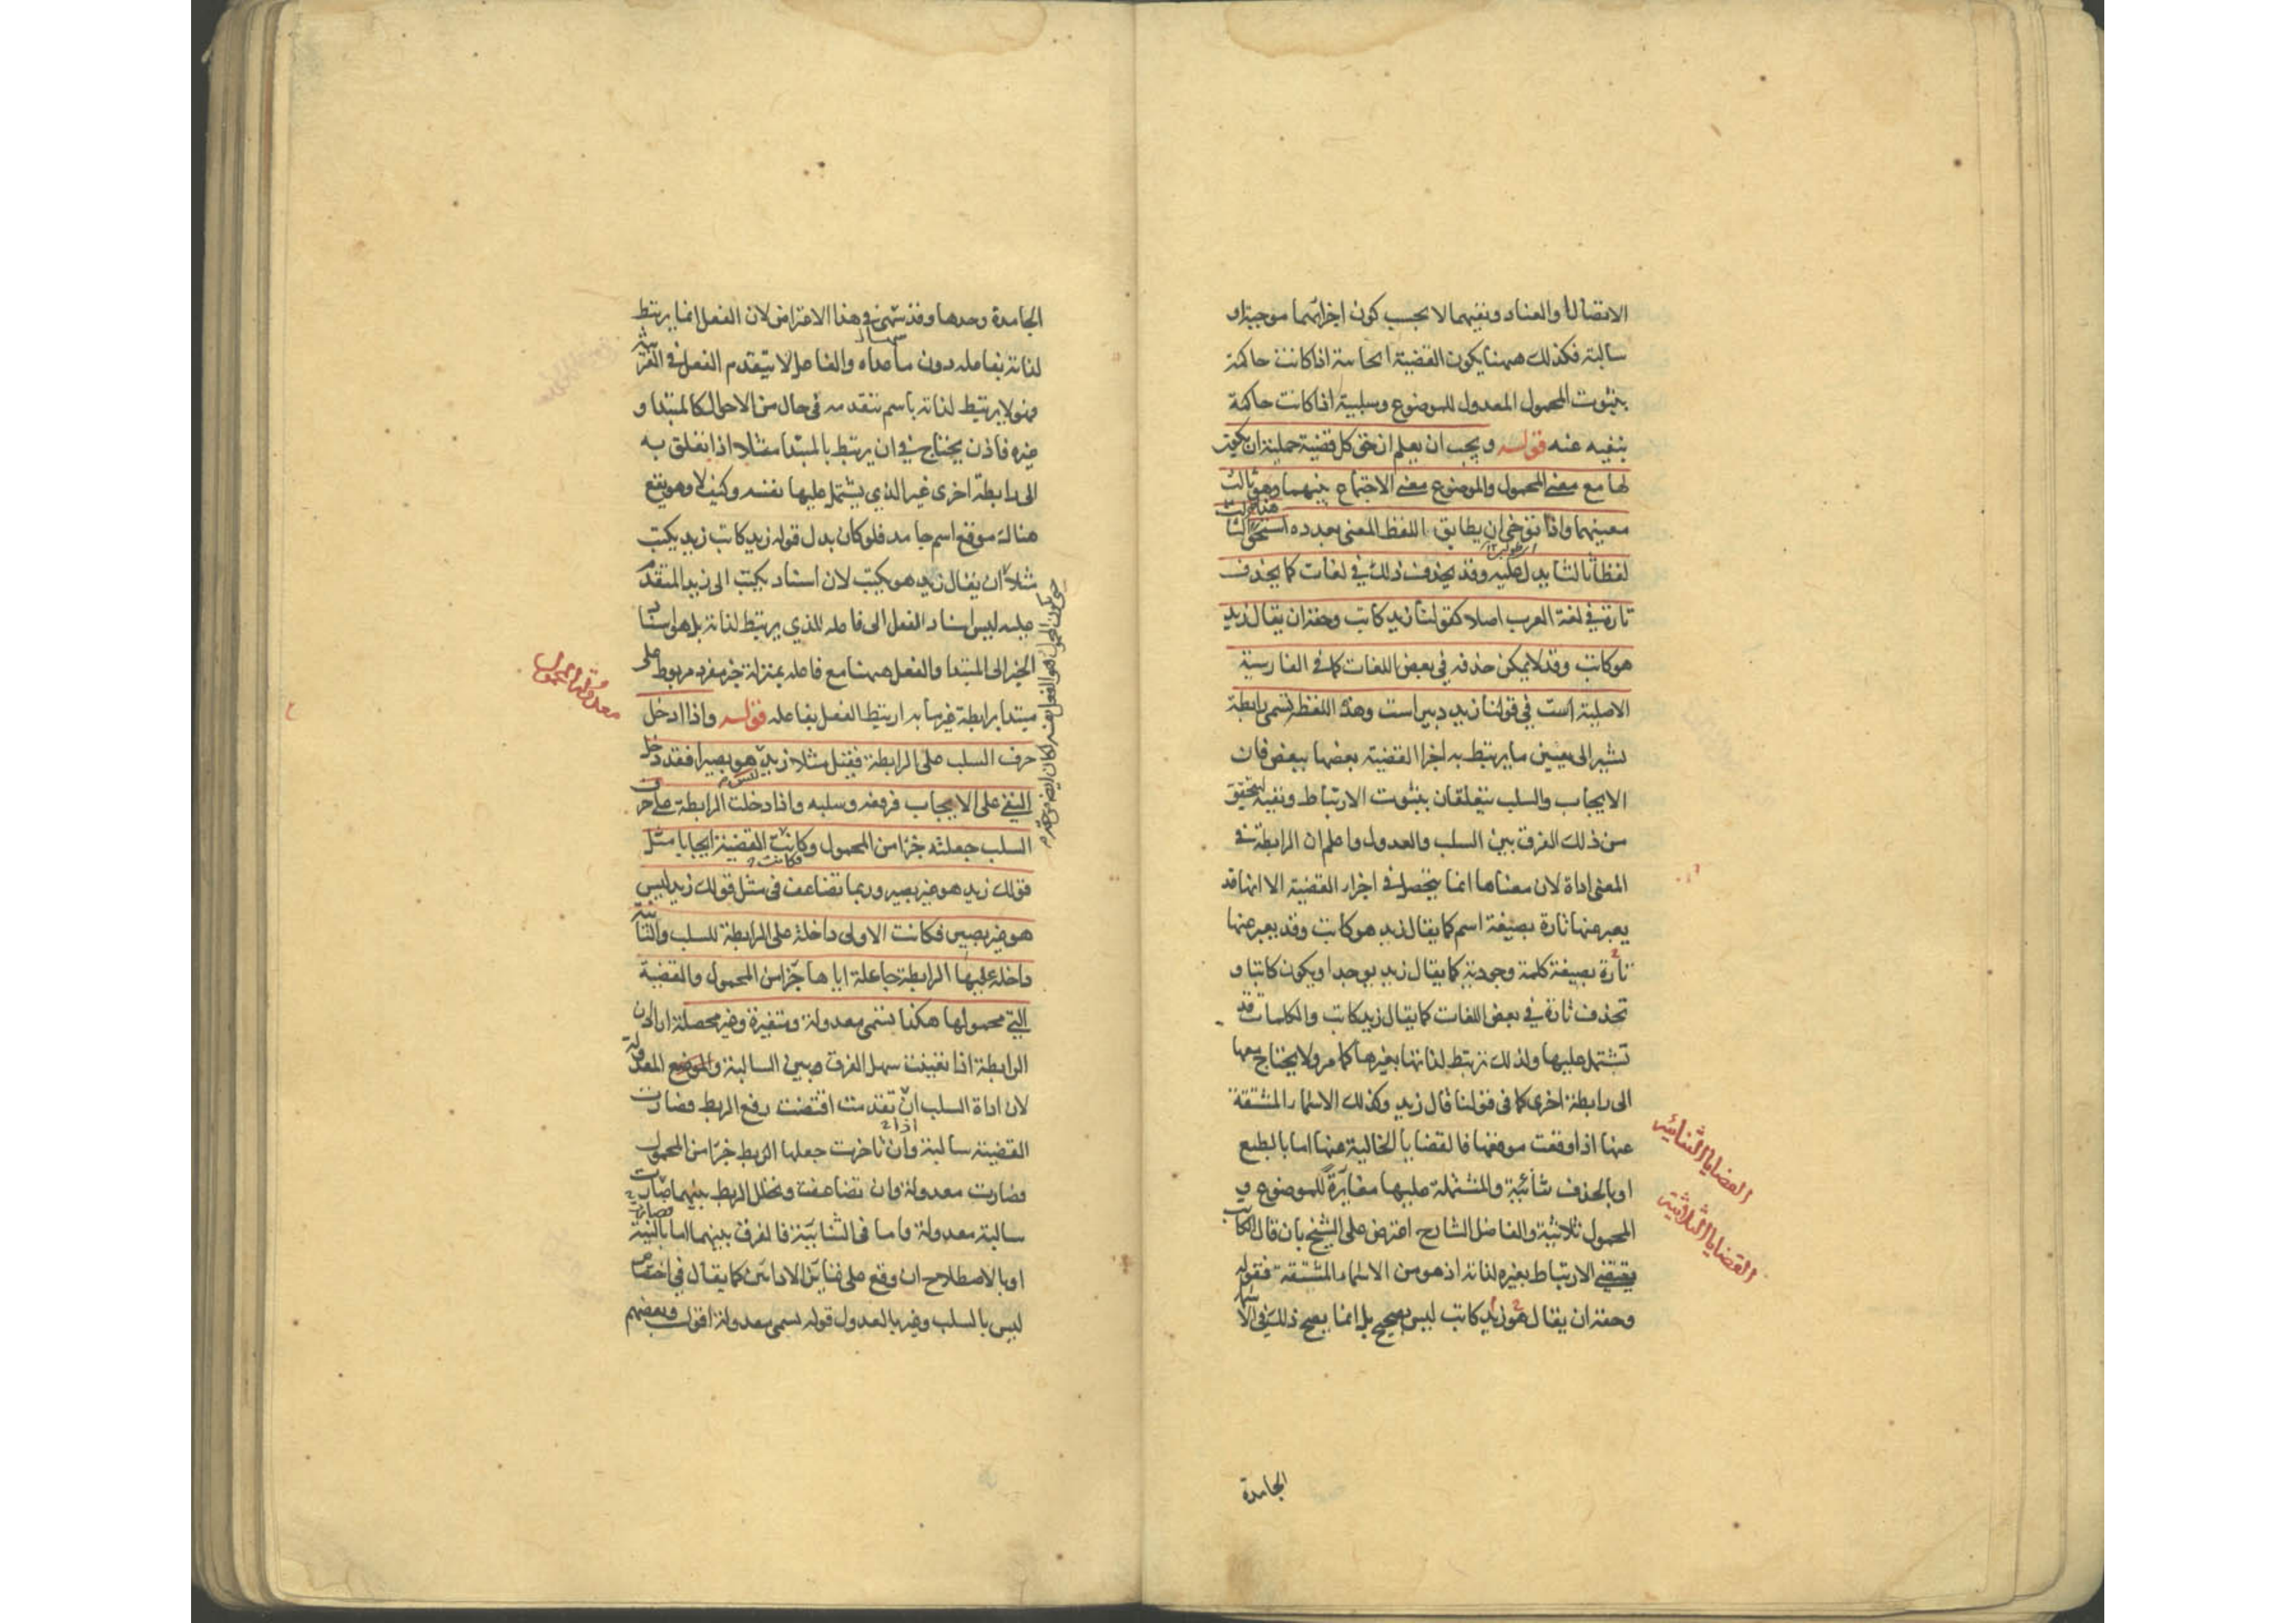 الاتصال او العناد ونفيهما لا بحسب كون اجزائهما موجبة او
سالبة فكذلك ههنا يكون القضية ايجابية اذا كانت حاكمة
بثبوت المحمول المعدول للموضوع وسلبية اذا كانت حاكمة
بنفيه عنه قوله ويجب ان يعلم ان حق كل قضية حملية ان يكون
لها مع معنى المحمول والموضوع معنى الاجتماع بينهما وهو ثالث
معنييهما واذا توخى ان يطابق اللفظ المعنى بعدده استحق
لفظا ثالثا يدل عليه وقد يحذف ذلك في لغات كما يحذف
تارة في لغة العرب اصلا كقولنا زيد كاتب وحقه ان يقال زيد
هو كاتب وقد لا يمكن حذفه في بعض اللغات كما في الفارسية
الاصلية است في قولنا زيد دبير است وهذه اللفظة تسمى رابطة
نشير الى تعيين ما يرتبط به اجزا القضية بعضها ببعض فان
الايجاب والسلب يتعلقان بثبوت الارتباط ونفيه ليتحقق
من ذلك الفرق بين السلب والعدول واعلم ان الرابطة في
المعنى اداة لان معناها انما يتحصل في اجزاء القضية الا انها قد
يعبر عنها تارة بصيغة اسم كما يقال زيد هو كاتب وقد يعبر عنها
تارة بصيغة كلمة وجودية كما يقال زيد يوجد او يكون كاتبا و
تحذف تارة في بعض اللغات كما يقال زيد كاتب والكلمات قد
تشتمل عليها ولذلك ترتبط لذاتها بغيرها كما مر ولا يحتاج معها
الى رابطة اخرى كما في قولنا قال زيد وكذلك الاسماء المشتقة
عنها اذا وقعت موقعها فالقضايا الخالية عنها اما بالطبع
او بالحذف ثنائية والمشتملة عليها مغايرة للموضوع و
المحمول ثلاثية والفاضل الشارح اعترض على الشيخ بان قال الكاتب
يقتضي الارتباط بغيره لذاته اذ هو من الاسماء المشتقة فقوله
وحقه ان يقال هو زيد كاتب ليس بصحيح بل انما يصح ذلك في الاسماء
القضايا الثنائية
القضايا الثلاثية
الجامدة
الجامدة وحدها وقد سهى في هذا الاعتراض لان الفعل انما يرتبط
لذاته بفاعله دون ما عداه والفاعل لا يتقدم الفعل في العربية
فهو لا يرتبط لذاته باسم يتقدمه في حال من الاحوال كالمبتدا و
غيره فاذن يحتاج في ان يرتبط بالمبتدا مثلا اذا تعلق به
الى رابطة اخرى غير الذي يشتمل عليها نفسه وكيف لا وهو يقع
هناك موقع اسم جامد فلو كان بدل قوله زيد كاتب زيد يكتب
مثلا ان يقال زيد هو يكتب لان اسناد يكتب الى زيد المتقدم
عليه ليس اسناد الفعل الى فاعله الذي يرتبط لذاته بل هو اسناد
الخبر الى المبتدا والفعل ههنا مع فاعله بمنزلة خبر مفرد مربوط على
مبتدا برابطة غير ما به ارتبط الفعل بفاعله قوله واذا ادخل
حرف السلب على الرابطة فقيل مثلا زيد هو بصيرا فقد دخل
النفي على الايجاب فرفعه وسلبه واذا دخلت الرابطة على حرف
السلب جعلته جزا من المحمول وكانت القضية ايجابا مثل
قولك زيد هو غير بصير وربما تضاعف في مثل قولك زيد ليس
هو غير بصير فكانت الاولى داخلة على الرابطة للسلب والثانية
داخلة عليها الرابطة جاعلة اياها جزا من المحمول والقضية
التي محمولها هكذا تسمى معدولة ومتغيرة وغير محصلة
الرابطة اذا تعينت سهل الفرق بين السالبة والمعدولة
لان اداة السلب ان تقدمت اقتضت رفع الربط فصارت
القضية سالبة وان تاخرت جعلها الربط جزا من المحمول
فصارت معدولة وان تضاعفت وتخلل الربط بينهما صارت
سالبة معدولة واما في الثنائية فالفرق بينهما اما بالنية
او بالاصطلاح ان وقع على تغاير الاداتين كما يقال في اختصاص
ليس بالسلب وغير بالعدول قوله تسمى معدولة اقول وبعضهم
معدولة المحمول